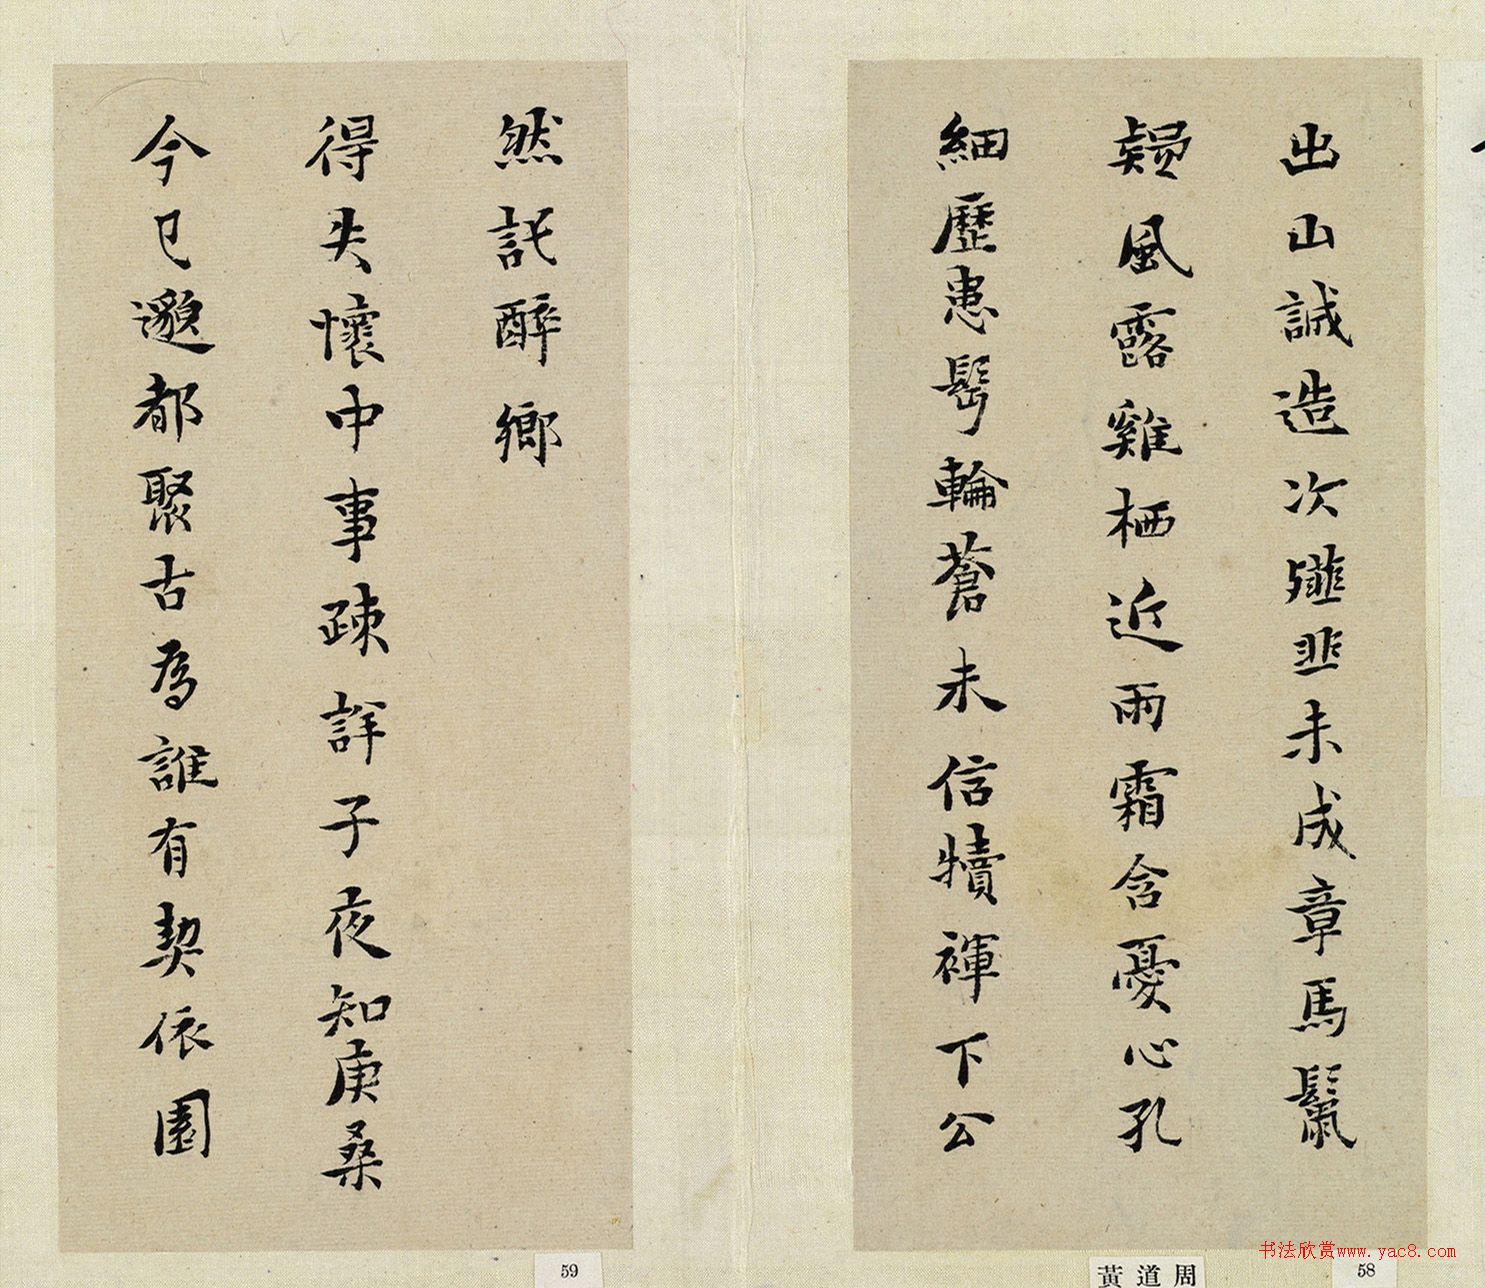 出山誠造次韰韭未成章馬鬣
風露雞栖近雨霜含憂心孔
細歷患髩輪蒼未信犢褌下公
然託醉鄉
得失懷中事疎詳子夜知庚桑
今已邈都聚古為誰有契依園
59
黃道周
58
书法欣赏www.yac8.com